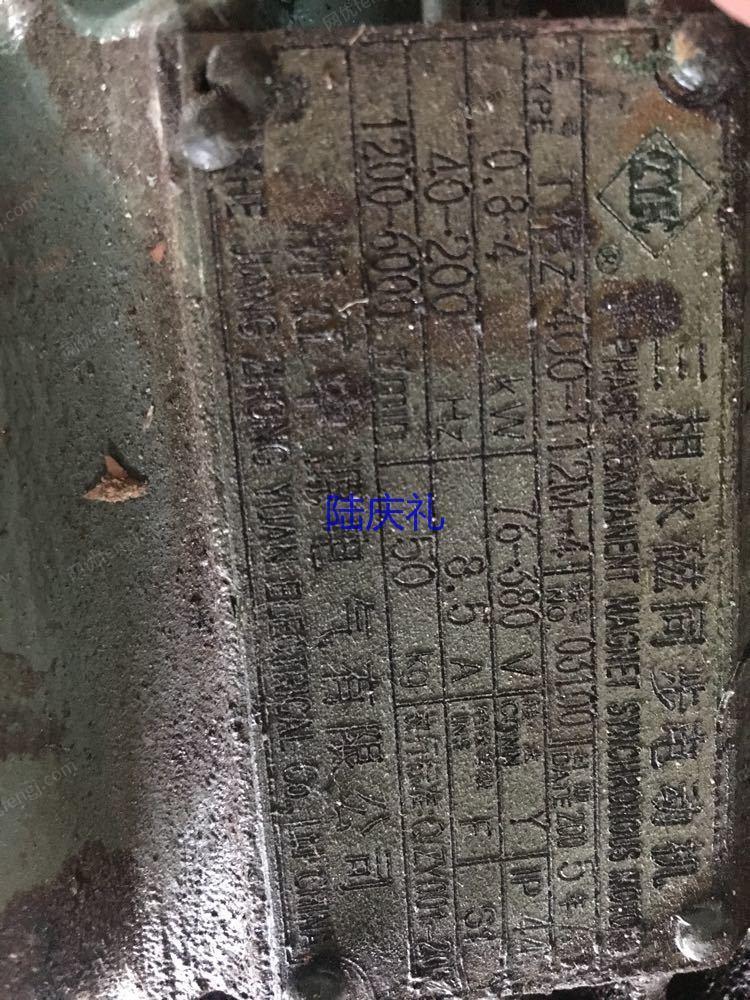 三相永磁同步电动机
PHASE PERMANENT MAGNET SYNCHRONOUS MOTOR
TYPE -400-112M-4 NO 03100 DATE 200 5
0.8-4 kW 76-380 V CONN Y IP 44
40-200 Hz 8.5 A INS F S1
1200-6000 r/min 50 kg
浙江 电气有限公司
ZHE JIANG ZHONG YUAN ELECTRICAL CO. LTD CHINA
陆庆礼